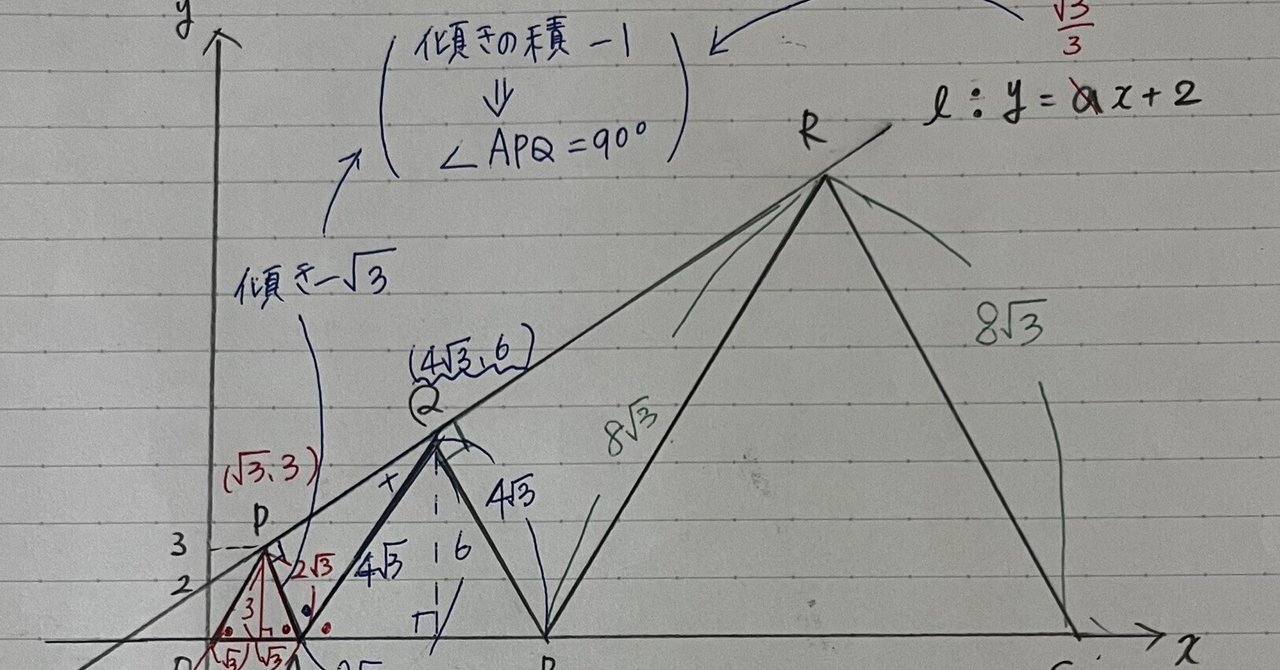 y
傾きの積 −1
⇓
∠APQ=90°
√3/3
l : y = ax+2
R
傾き−√3
8√3
(4√3, 6)
Q
8√3
(√3, 3)
4√3
P
3
6
2√3
4√3
2
3
x
√3
√3